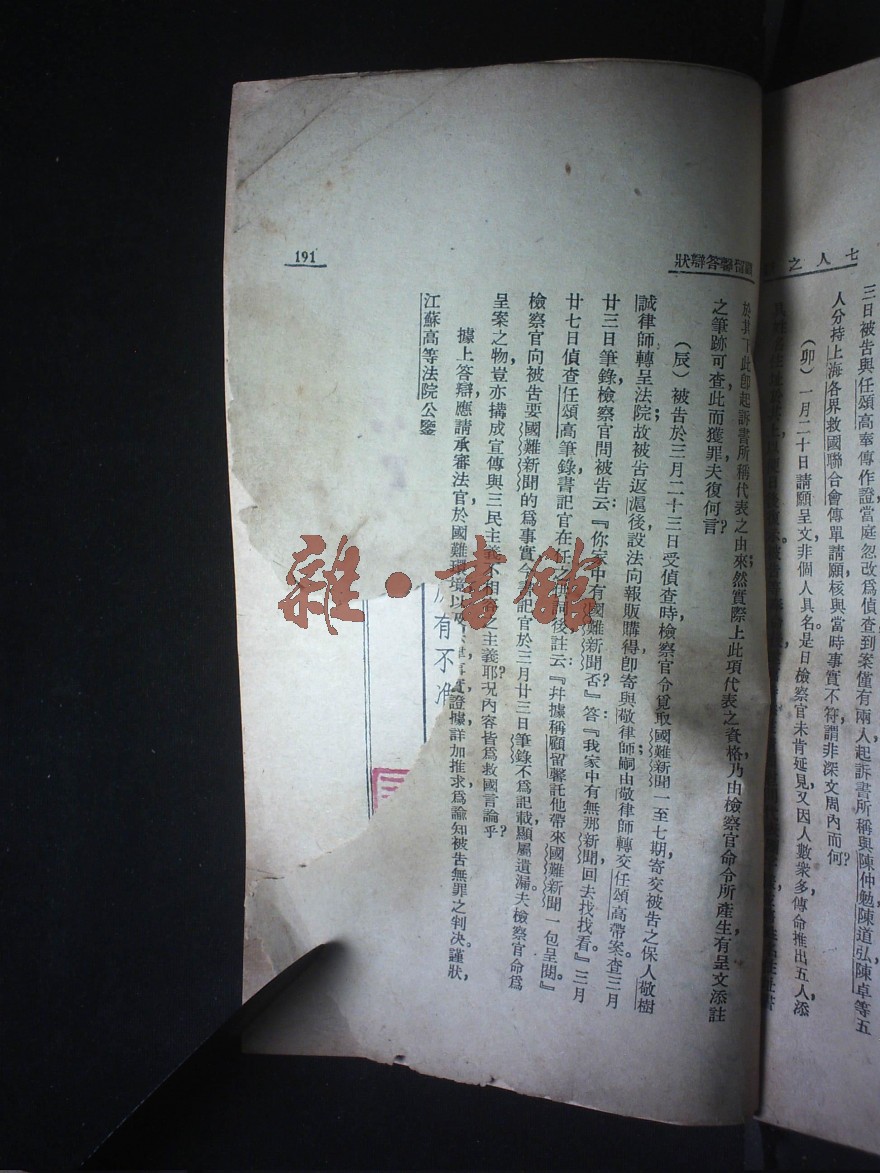 七人之
三日被告與任頌高奉傳作證當庭忽改爲偵查到案僅有兩人起訴書所稱與陳仲勉陳道弘陳卓等五
人分持上海各界救國聯合會傳單請願核與當時事實不符謂非深文周內而何？
（卯）一月二十日請願呈文非個人具名是日檢察官未肯延見又因人數衆多傳命推出五人添
答辯狀
191
於其下此卽起訴書所稱代表之由來然實際上此項代表之資格乃由檢察官命令所產生有呈文添註
之筆跡可查此而獲罪夫復何言？
（辰）被告於三月二十三日受偵查時，檢察官令覓取國難新聞一至七期寄交被告之保人敬樹
誠律師轉呈法院；故被告返滬後，設法向報販購得卽寄與敬律師嗣由敬律師轉交任頌高帶案查三月
廿三日筆錄，檢察官問被告云：『你家中有國難新聞否』？答：『我家中有無那新聞，回去找找看。』三月
廿七日偵查任頌高筆錄書記官在任之供詞後註云：『幷據稱顧留馨託他帶來國難新聞一包呈閱。』
檢察官向被告要國難新聞的爲事實今書記官於三月廿三日筆錄不爲記載顯屬遺漏。夫檢察官命爲
呈案之物，豈亦構成宣傳與三民主義不相容之主義耶？況內容皆爲救國言論乎？
據上答辯，應請承審法官於國難環境以證據詳加推求爲諭知被告無罪之判決。謹狀，
江蘇高等法院公鑒
有不准
雜·書館